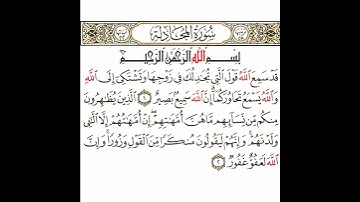 سُورَةُ المُجَادلة
بِسْمِ اللَّهِ الرَّحْمَٰنِ الرَّحِيمِ
قَدْ سَمِعَ اللَّهُ قَوْلَ الَّتِي تُجَٰدِلُكَ فِي زَوْجِهَا وَتَشْتَكِي إِلَى اللَّهِ
وَاللَّهُ يَسْمَعُ تَحَاوُرَكُمَا إِنَّ اللَّهَ سَمِيعٌ بَصِيرٌ ١ الَّذِينَ يُظَٰهِرُونَ
مِنكُم مِّن نِّسَائِهِم مَّا هُنَّ أُمَّهَٰتِهِمْ إِنْ أُمَّهَٰتُهُمْ إِلَّا الَّٰئِي
وَلَدْنَهُمْ وَإِنَّهُمْ لَيَقُولُونَ مُنكَرًا مِّنَ الْقَوْلِ وَزُورًا وَإِنَّ
اللَّهَ لَعَفُوٌّ غَفُورٌ ٢